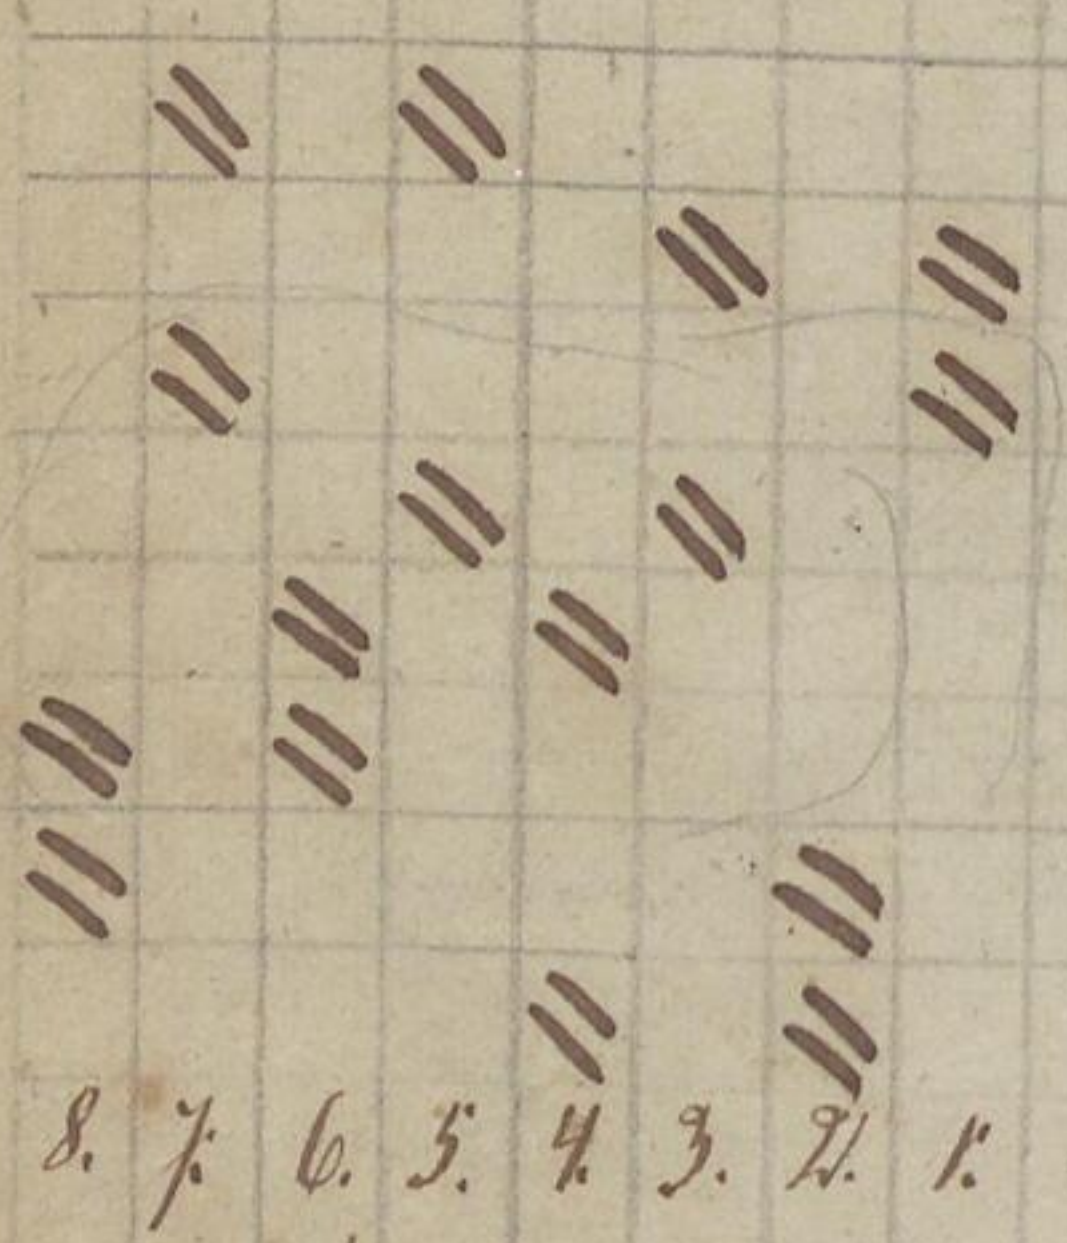 8. 7. 6. 5. 4. 3. 2. 1.